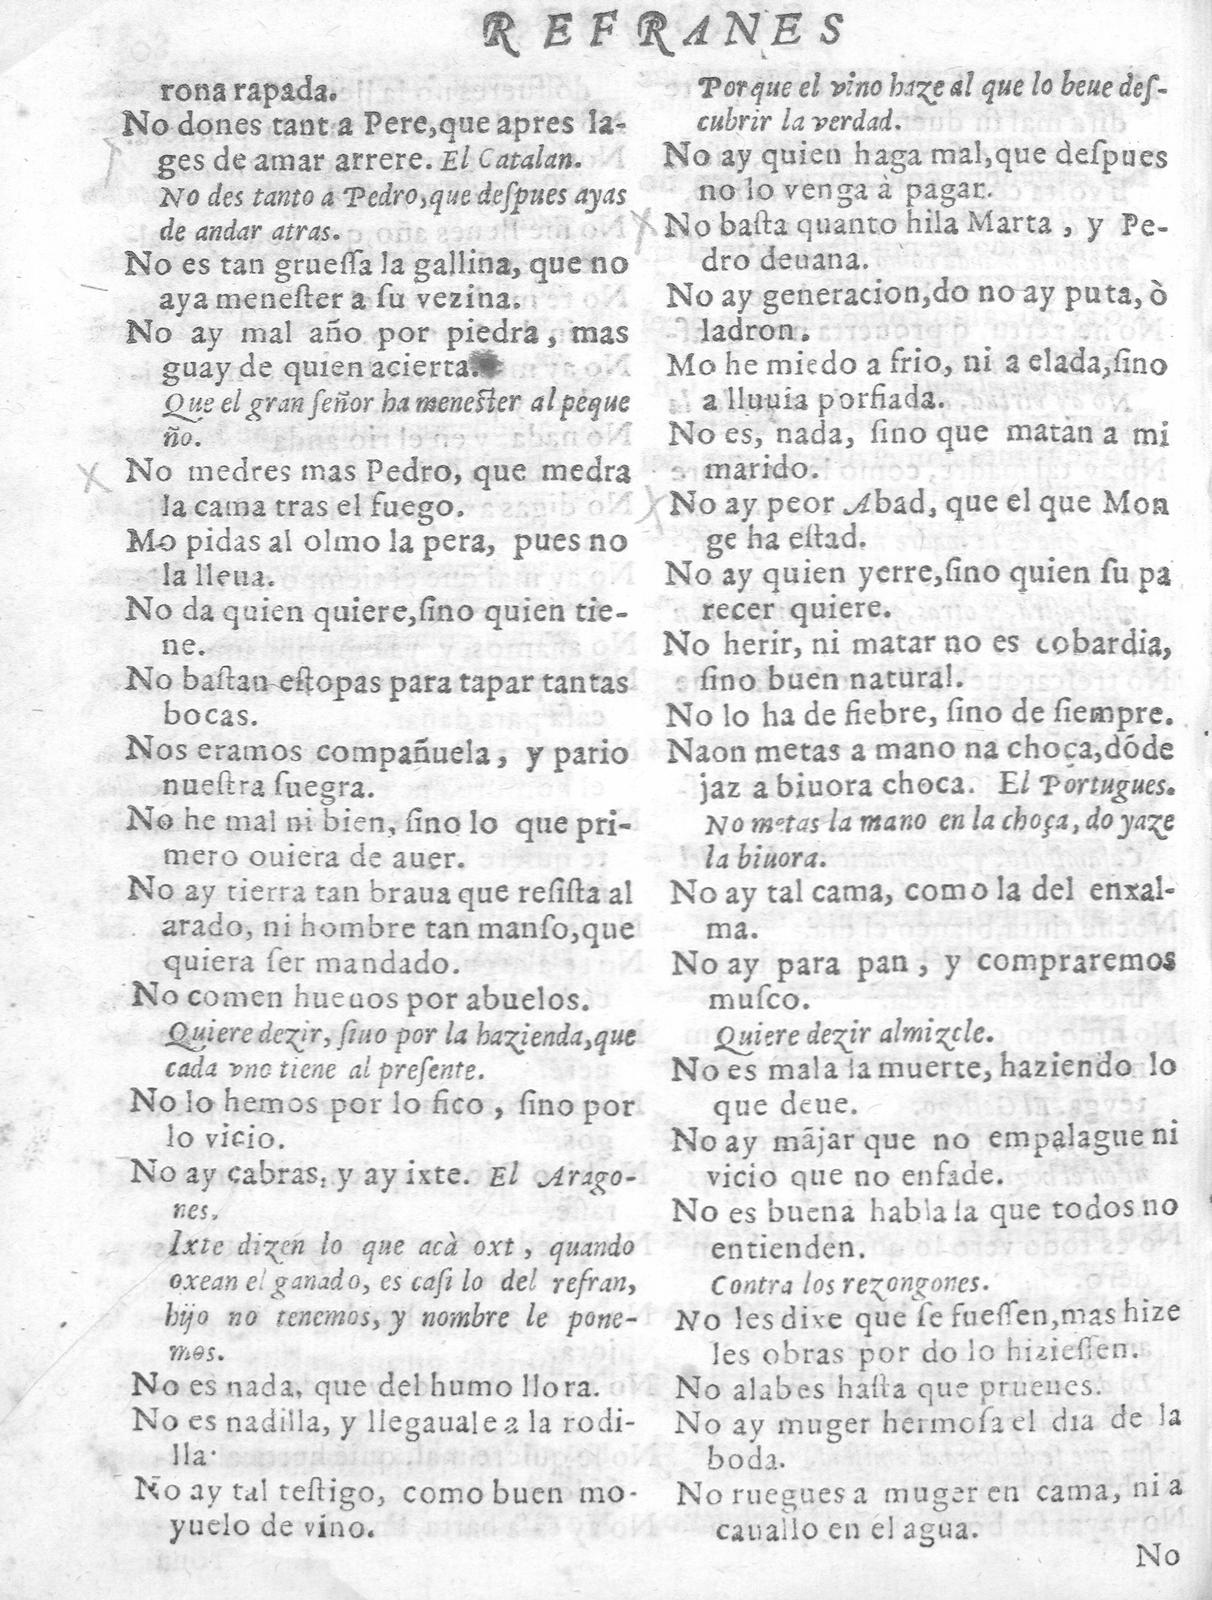 REFRANES
rona rapada.
No dones tant a Pere,que apres la-
ges de amar arrere. El Catalan.
No des tanto a Pedro,que deſpues ayas
de andar atras.
No es tan grueſſa la gallina, que no
aya meneſter a ſu vezina.
No ay mal año por piedra, mas
guay de quien acierta.
Que el gran ſeñor ha meneſter al peque
ño.
No medres mas Pedro, que medra
la cama tras el fuego.
Mo pidas al olmo la pera, pues no
la lleua.
No da quien quiere,ſino quien tie-
ne.
No baſtan eſtopas para tapar tantas
bocas.
Nos eramos compañuela, y pario
nueſtra ſuegra.
No he mal ni bien, ſino lo que pri-
mero ouiera de auer.
No ay tierra tan braua que reſiſta al
arado, ni hombre tan manſo,que
quiera ſer mandado.
No comen hueuos por abuelos.
Quiere dezir, ſino por la hazienda,que
cada vno tiene al preſente.
No lo hemos por lo fico, ſino por
lo vicio.
No ay cabras, y ay ixte. El Arago-
nes.
Ixte dizen lo que acà oxt, quando
oxean el ganado, es caſi lo del refran,
hijo no tenemos, y nombre le pone-
mos.
No es nada, que del humo llora.
No es nadilla, y llegauale a la rodi-
lla.
No ay tal teſtigo, como buen mo-
yuelo de vino.
Porque el vino haze al que lo beue deſ-
cubrir la verdad.
No ay quien haga mal,que deſpues
no lo venga à pagar.
No baſta quanto hila Marta, y Pe-
dro deuana.
No ay generacion,do no ay puta, ò
ladron.
Mo he miedo a frio, ni a elada,ſino
a lluuia porfiada.
No es, nada, ſino que matan a mi
marido.
No ay peor Abad, que el que Mon
ge ha eſtad.
No ay quien yerre,ſino quien ſu pa
recer quiere.
No herir, ni matar no es cobardia,
ſino buen natural.
No lo ha de fiebre, ſino de ſiempre.
Naon metas a mano na choça,dóde
jaz a biuora choca. El Portugues.
No metas la mano en la choça, do yaze
la biuora.
No ay tal cama, como la del enxal-
ma.
No ay para pan, y compraremos
muſco.
Quiere dezir almizcle.
No es mala la muerte, haziendo lo
que deue.
No ay mãjar que no empalague ni
vicio que no enfade.
No es buena habla la que todos no
entienden.
Contra los rezongones.
No les dixe que ſe fueſſen,mas hize
les obras por do lo hizieſſen.
No alabes haſta que prueues.
No ay muger hermoſa el dia de la
boda.
No ruegues a muger en cama, ni a
cauallo en el agua.
No